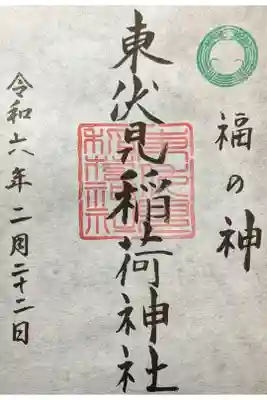 福の神
東伏見稲荷神社
令和六年二月二十二日